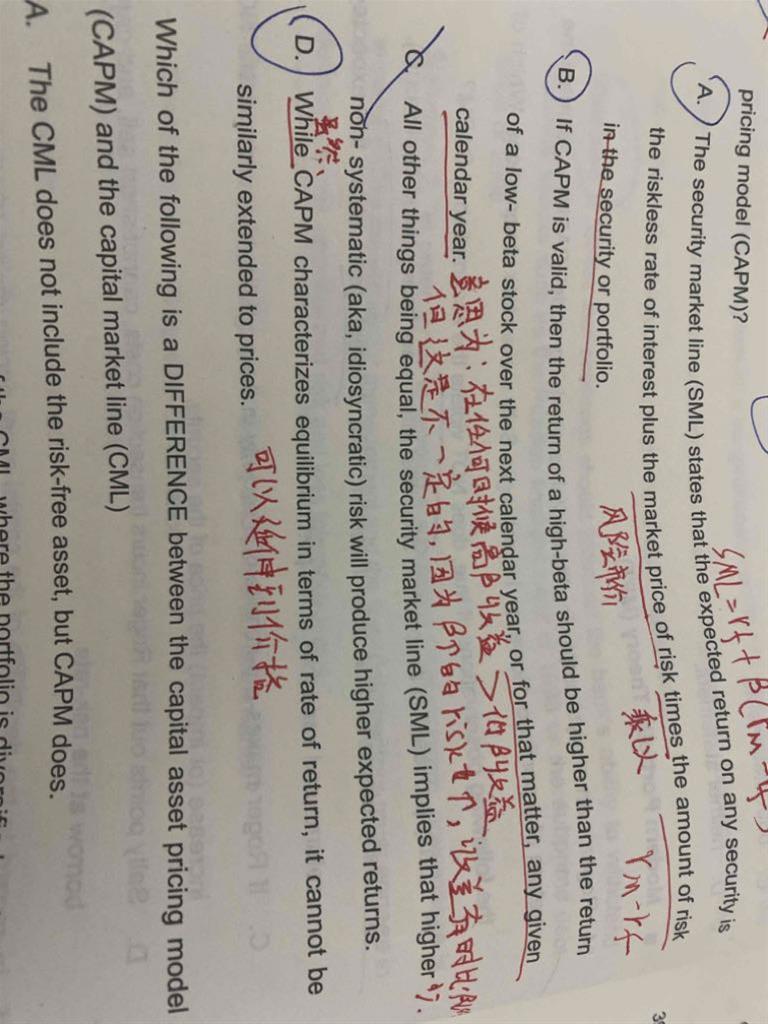 pricing model (CAPM)?
SML = rf + β(rm - rf)
A. The security market line (SML) states that the expected return on any security is
the riskless rate of interest plus the market price of risk times the amount of risk
风险市价 乘以 rm-rf
in the security or portfolio.
B. If CAPM is valid, then the return of a high-beta should be higher than the return
of a low- beta stock over the next calendar year, or for that matter, any given
calendar year. 意思为：在任何时候高β收益 > 低β收益
但这是不一定的，因为β大的risk大，收益有时比
C. All other things being equal, the security market line (SML) implies that higher
non- systematic (aka, idiosyncratic) risk will produce higher expected returns.
虽然
D. While CAPM characterizes equilibrium in terms of rate of return, it cannot be
similarly extended to prices. 可以延伸到价格
Which of the following is a DIFFERENCE between the capital asset pricing model
(CAPM) and the capital market line (CML)
A. The CML does not include the risk-free asset, but CAPM does.
of the CML, where the portfolio is